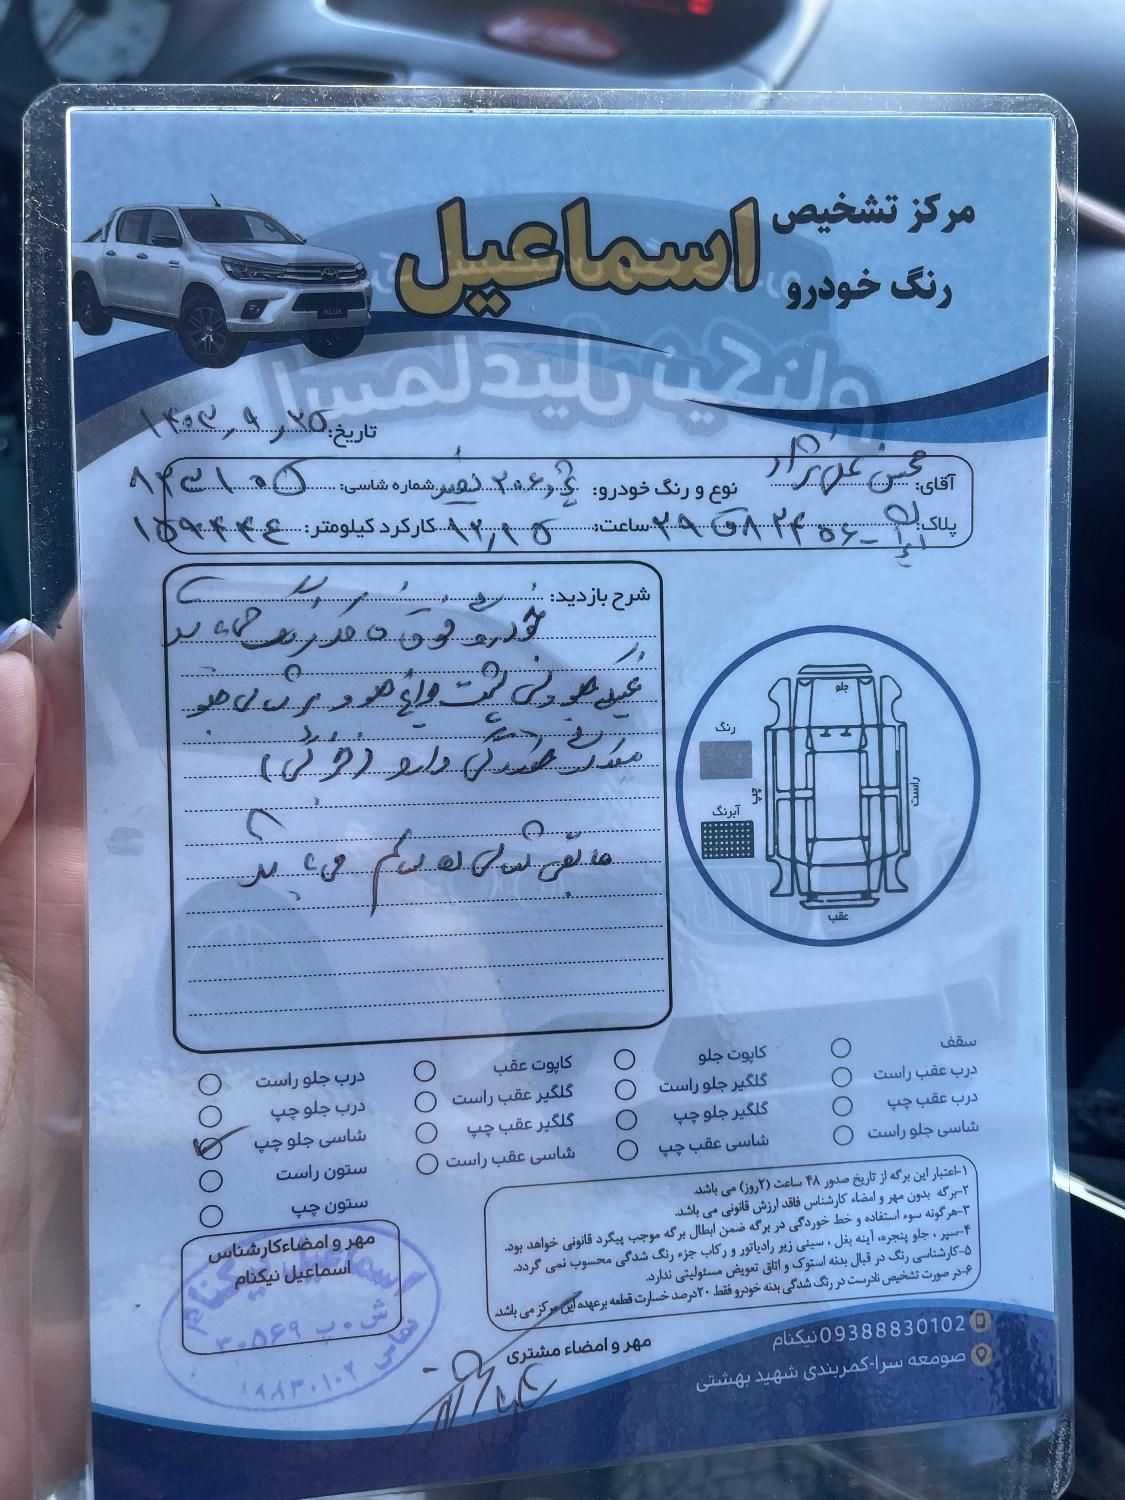 مرکز تشخیص
رنگ خودرو
اسماعیل
تاریخ: ۱۴۰۳٫۹٫۲۵
آقای: محسن
نوع و رنگ خودرو: ۲۰۶
شماره شاسی:
پلاک:
ساعت: ۱۲٫۱۵
کارکرد کیلومتر:
شرح بازدید:
خودروی فوق فاقد رنگ
مقداری دارد
مابقی سالم می باشد
جلو
رنگ
چپ
راست
آبرنگ
عقب
سقف
درب عقب راست
درب عقب چپ
شاسی جلو راست
کاپوت جلو
گلگیر جلو راست
گلگیر جلو چپ
شاسی عقب چپ
کاپوت عقب
گلگیر عقب راست
گلگیر عقب چپ
شاسی عقب راست
درب جلو راست
درب جلو چپ
شاسی جلو چپ
ستون راست
ستون چپ
۱-اعتبار این برگه از تاریخ صدور ۴۸ ساعت (۲روز) می باشد.
۲-برگه بدون مهر و امضاء کارشناس فاقد ارزش قانونی می باشد.
۳-هرگونه سوء استفاده و خط خوردگی در برگه ضمن ابطال برگه موجب پیگرد قانونی خواهد بود.
۴-سپر ، جلو پنجره، آینه بغل ، سینی زیر رادیاتور و رکاب جزء رنگ شدگی محسوب نمی گردد.
۵-کارشناسی رنگ در قبال بدنه استوک و اتاق تعویض مسئولیتی ندارد.
۶-در صورت تشخیص نادرست در رنگ شدگی بدنه خودرو فقط ۲۰درصد خسارت قطعه برعهده این مرکز می باشد.
مهر و امضاءکارشناس
اسماعیل نیکنام
ش.پ ۳۰۵۶۹
مهر و امضاء مشتری
09388830102 نیکنام
صومعه سرا-کمربندی شهید بهشتی